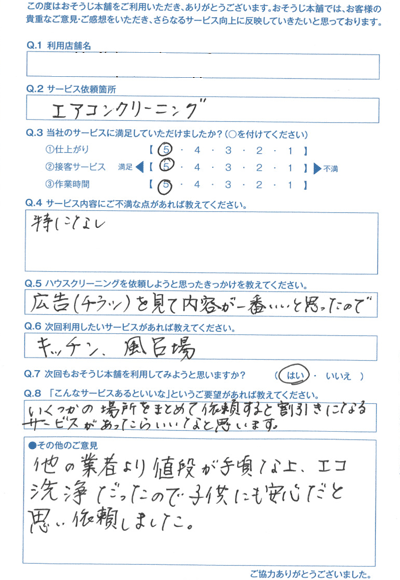 この度はおそうじ本舗をご利用いただき、ありがとうございます。おそうじ本舗では、お客様の
貴重なご意見・ご感想をいただき、さらなるサービス向上に反映していきたいと思っております。
Q.1 利用店舗名
Q.2 サービス依頼箇所
エアコンクリーニング
Q.3 当社のサービスに満足していただけましたか？（○を付けてください）
①仕上がり 【 5 ・ 4 ・ 3 ・ 2 ・ 1 】
②接客サービス 満足 ◀【 5 ・ 4 ・ 3 ・ 2 ・ 1 】▶ 不満
③作業時間 【 5 ・ 4 ・ 3 ・ 2 ・ 1 】
Q.4 サービス内容にご不満な点があれば教えてください。
特になし
Q.5 ハウスクリーニングを依頼しようと思ったきっかけを教えてください。
広告(チラシ)を見て内容が一番いいと思ったので
Q.6 次回利用したいサービスがあれば教えてください。
キッチン、風呂場
Q.7 次回もおそうじ本舗を利用してみようと思いますか？ （ はい ・ いいえ ）
Q.8 「こんなサービスあるといいな」というご要望があれば教えてください。
いくつかの場所をまとめて依頼すると割引きになる
サービスがあったらいいなと思います。
●その他のご意見
他の業者より値段が手頃な上、エコ
洗浄だったので子供にも安心だと
思い依頼しました。
ご協力ありがとうございました。